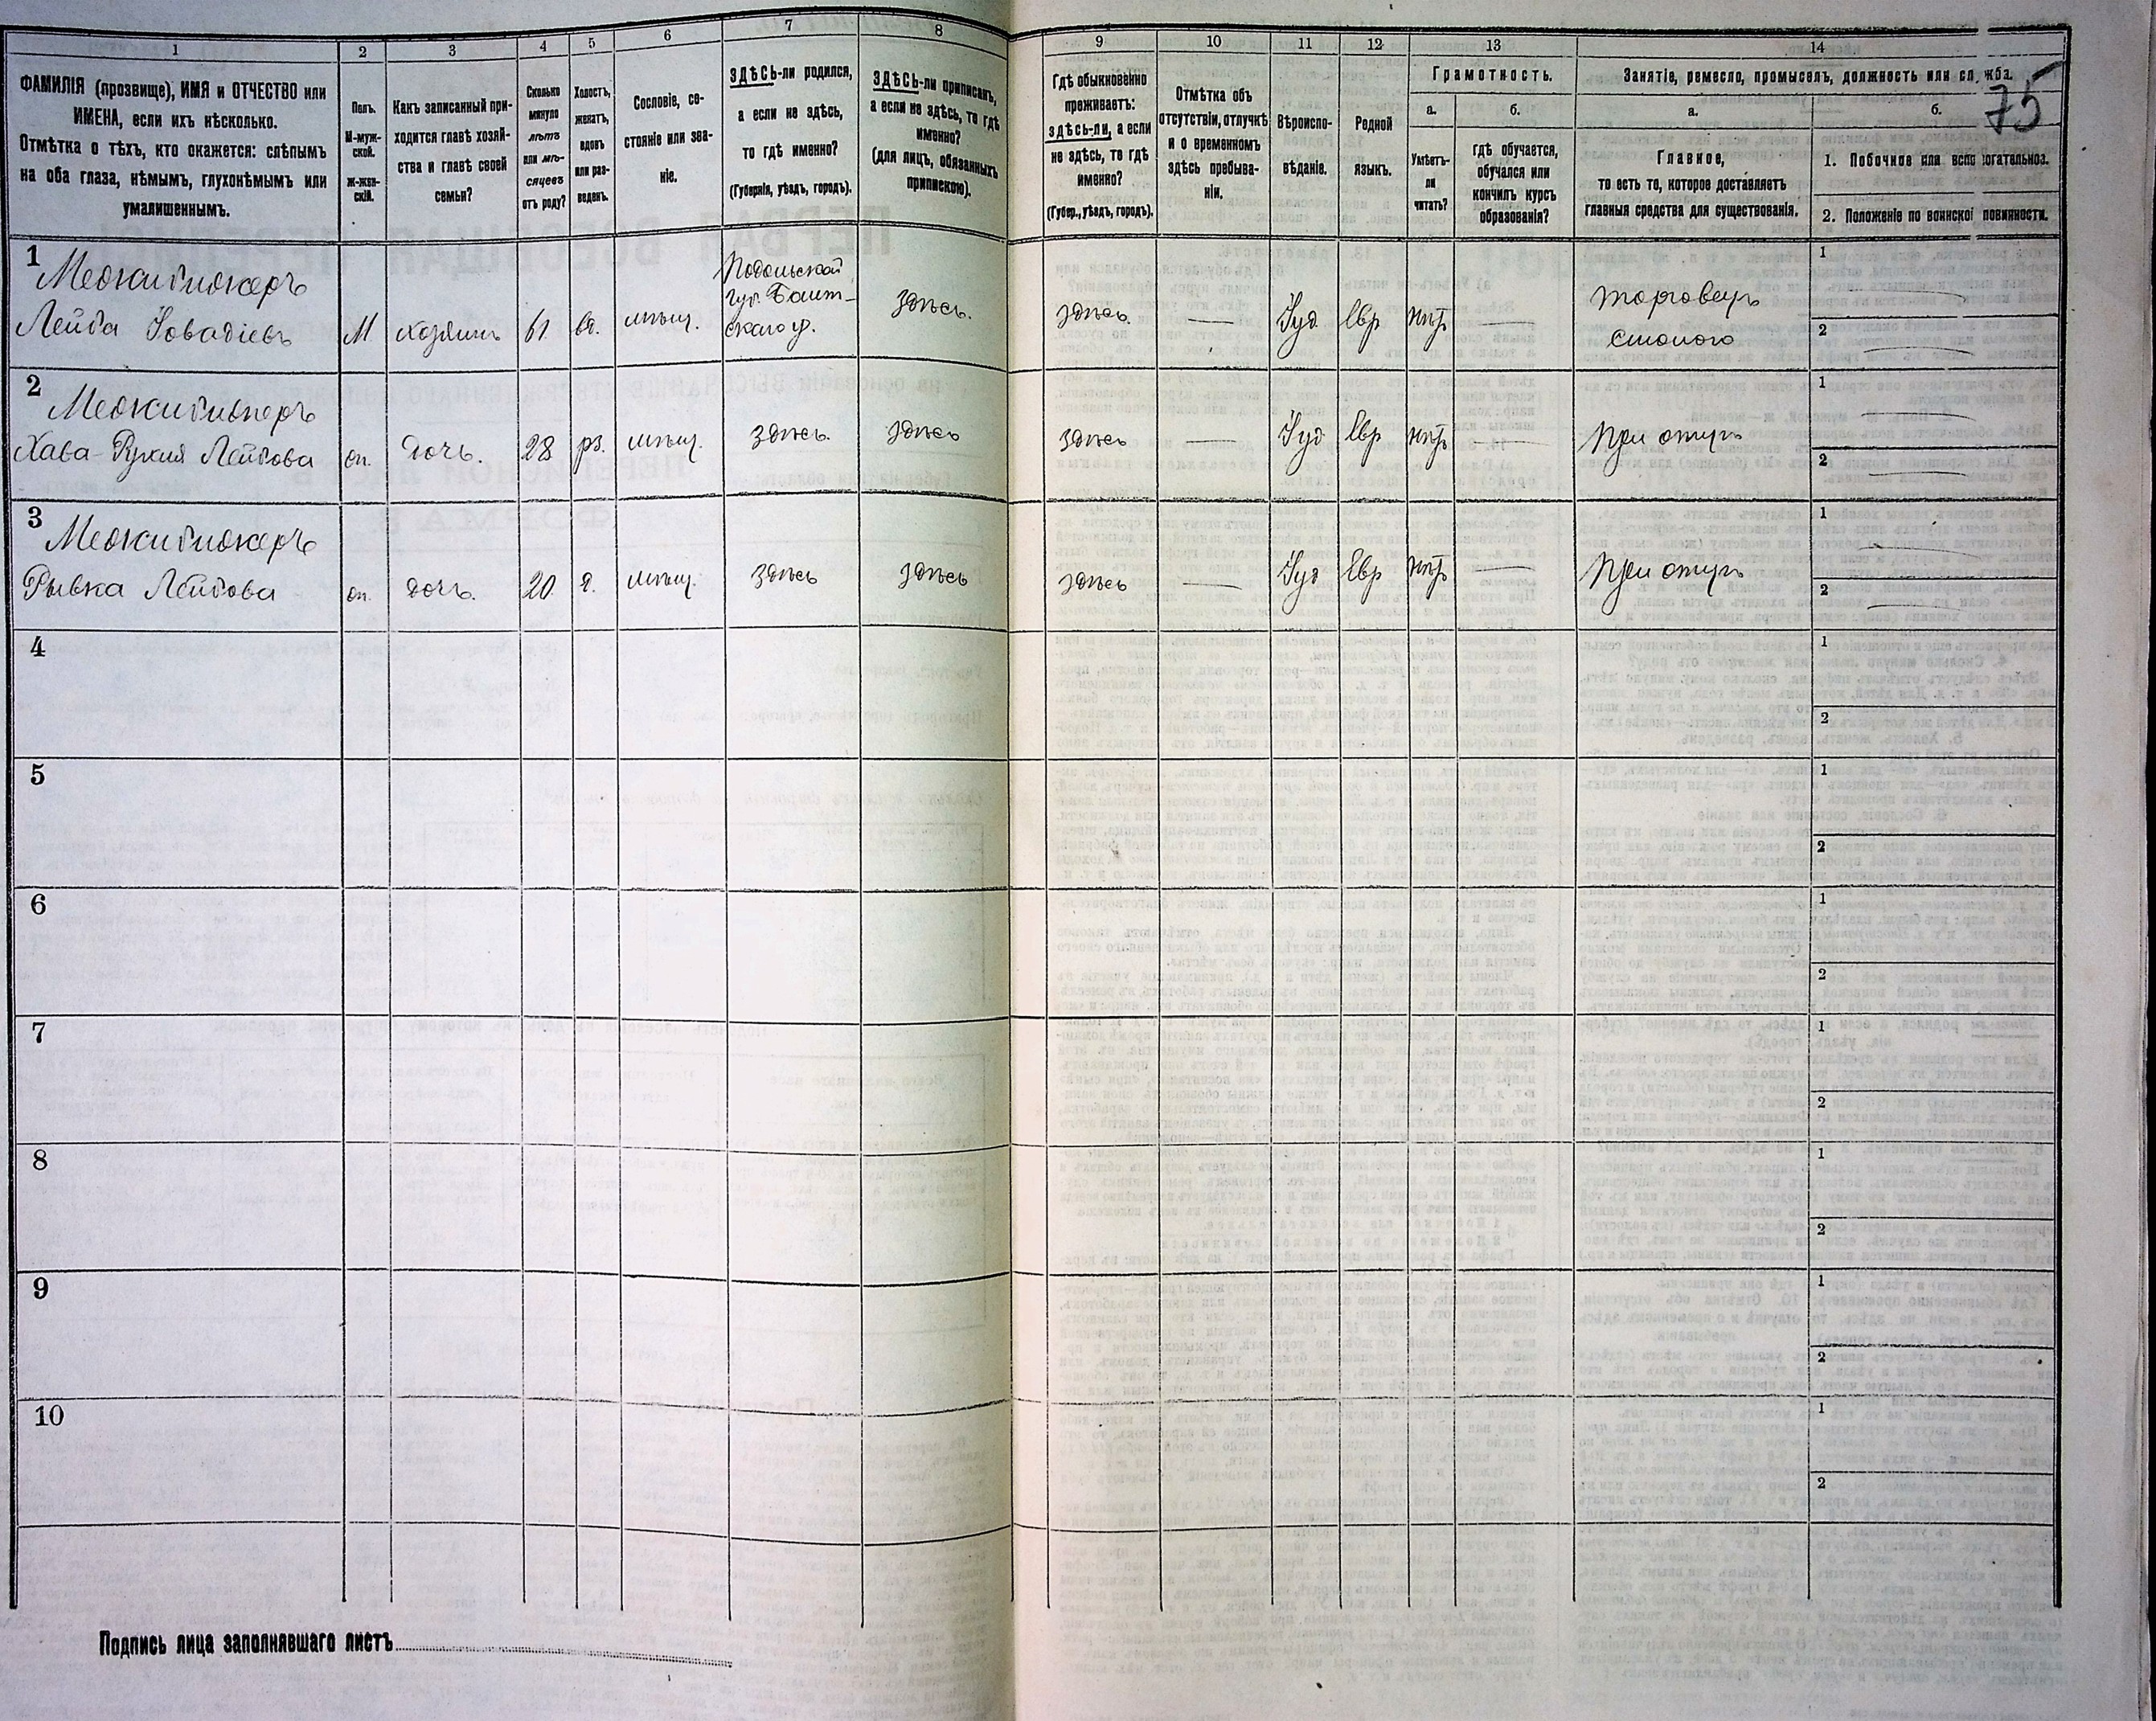 1 2 3 4 5 6 7 8 9 10 11 12 13 14
75
ФАМИЛІЯ (прозвище), ИМЯ и ОТЧЕСТВО или
ИМЕНА, если ихъ нѣсколько.
Отмѣтка о тѣхъ, кто окажется: слѣпымъ
на оба глаза, нѣмымъ, глухонѣмымъ или
умалишеннымъ.
Полъ.
М-муж-
ской.
ж-жен-
скій.
Какъ записанный при-
ходится главѣ хозяй-
ства и главѣ своей
семьи?
Сколько
минуло
лѣтъ
или мѣ-
сяцевъ
отъ роду?
Холостъ,
женатъ,
вдовъ
или раз-
веденъ.
Сословіе, со-
стояніе или зва-
ніе.
ЗДѢСЬ-ли родился,
а если не здѣсь,
то гдѣ именно?
(Губернія, уѣздъ, городъ).
ЗДѢСЬ-ли приписанъ,
а если не здѣсь, то гдѣ
именно?
(для лицъ, обязанныхъ
припискою).
Гдѣ обыкновенно
проживаетъ:
здѣсь-ли, а если
не здѣсь, то гдѣ
именно?
(Губер., уѣздъ, городъ).
Отмѣтка объ
отсутствіи, отлучкѣ
и о временномъ
здѣсь пребыва-
ніи.
Вѣроиспо-
вѣданіе.
Родной
языкъ.
Грамотность.
а.
Умѣетъ-
ли
читать?
б.
гдѣ обучается,
обучался или
кончилъ курсъ
образованія?
Занятіе, ремесло, промыселъ, должность или служба.
а.
Главное,
то есть то, которое доставляетъ
главныя средства для существованія.
б.
1. Побочное или вспомогательное.
2. Положеніе по воинской повинности.
1
Межибижеръ
Лейба Іовадіевъ М хозяинъ 61 вд. мѣщ.
Подольской
губ. Балт-
скаго у.
здѣсь. здѣсь. — Іуд Евр нѣтъ —
торговецъ
солью
1 —
2 —
2
Межибижеръ
Хава-Рухля Лейбова дочь. 28 рз. мѣщ. здѣсь. здѣсь здѣсь — Іуд Евр нѣтъ — при отцѣ
1 —
2 —
3
Межибижеръ
Рывка Лейбова дочь. 20 д. мѣщ. здѣсь здѣсь здѣсь — Іуд Евр нѣтъ — при отцѣ
1 —
2 —
4
1
2
5
1
2
6
1
2
7
1
2
8
1
2
9
1
2
10
1
2
Подпись лица заполнявшаго листъ